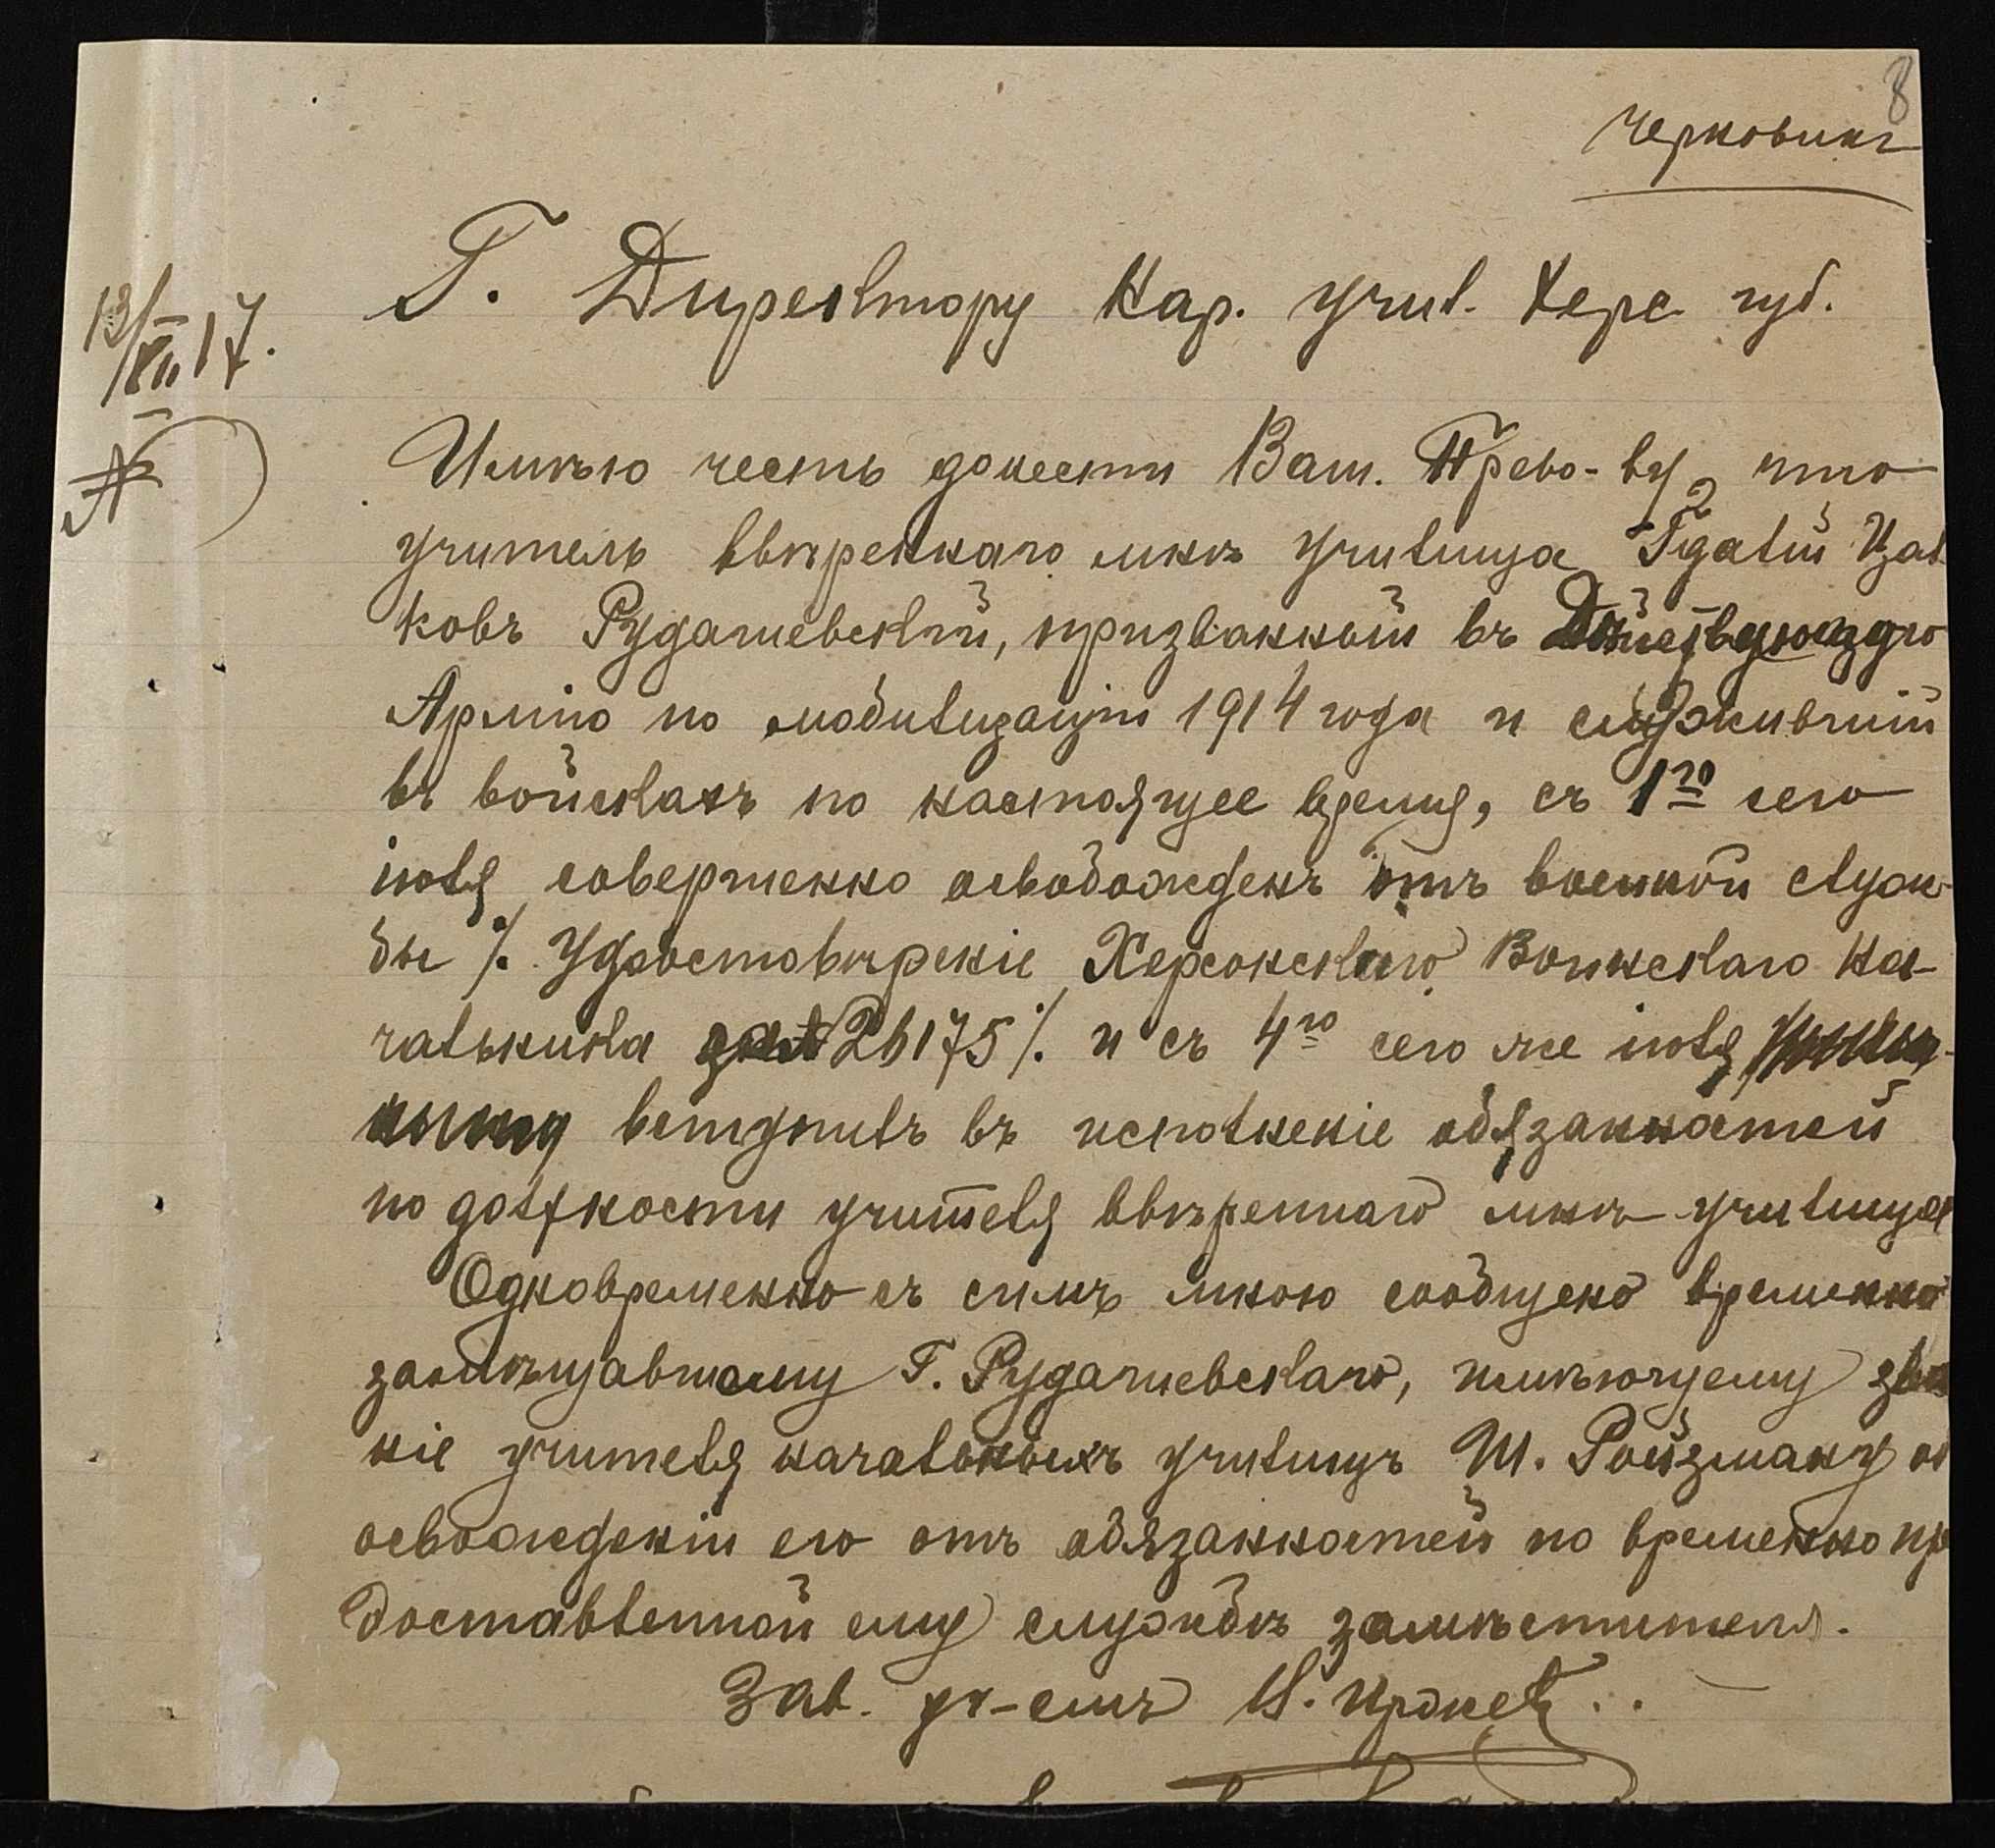 8
Черновикъ
Г. Директору Нар. Учил. Херс. губ.
13/VII 17.
№
Имѣю честь донести Ваш. Прево-ву, что
учитель ввѣреннаго мнѣ училища Гдалій Цал
ковъ Рудашевскій, призванный въ Дѣйствующую
Армію по мобилизаціи 1914 года и служившій
въ войскахъ по настоящее время, съ 1го сего
іюля совершенно освобожденъ отъ военной служ-
бы /. Удостовѣреніе Херсонскаго Воинскаго На-
чальника за № 26175 /. и съ 4го сего же іюля
вступилъ въ исполненіе обязанностей
по должности учителя ввѣреннаго мнѣ училища
Одновременно съ симъ мною сообщено временно
замѣщавшему Г. Рудашевскаго, имѣющему зва
ніе учителя начальныхъ училищъ Ш. Ройзману об
освобожденіи его отъ обязанностей по временно пре
доставленной ему службѣ замѣстителя.
Зав. уч-емъ